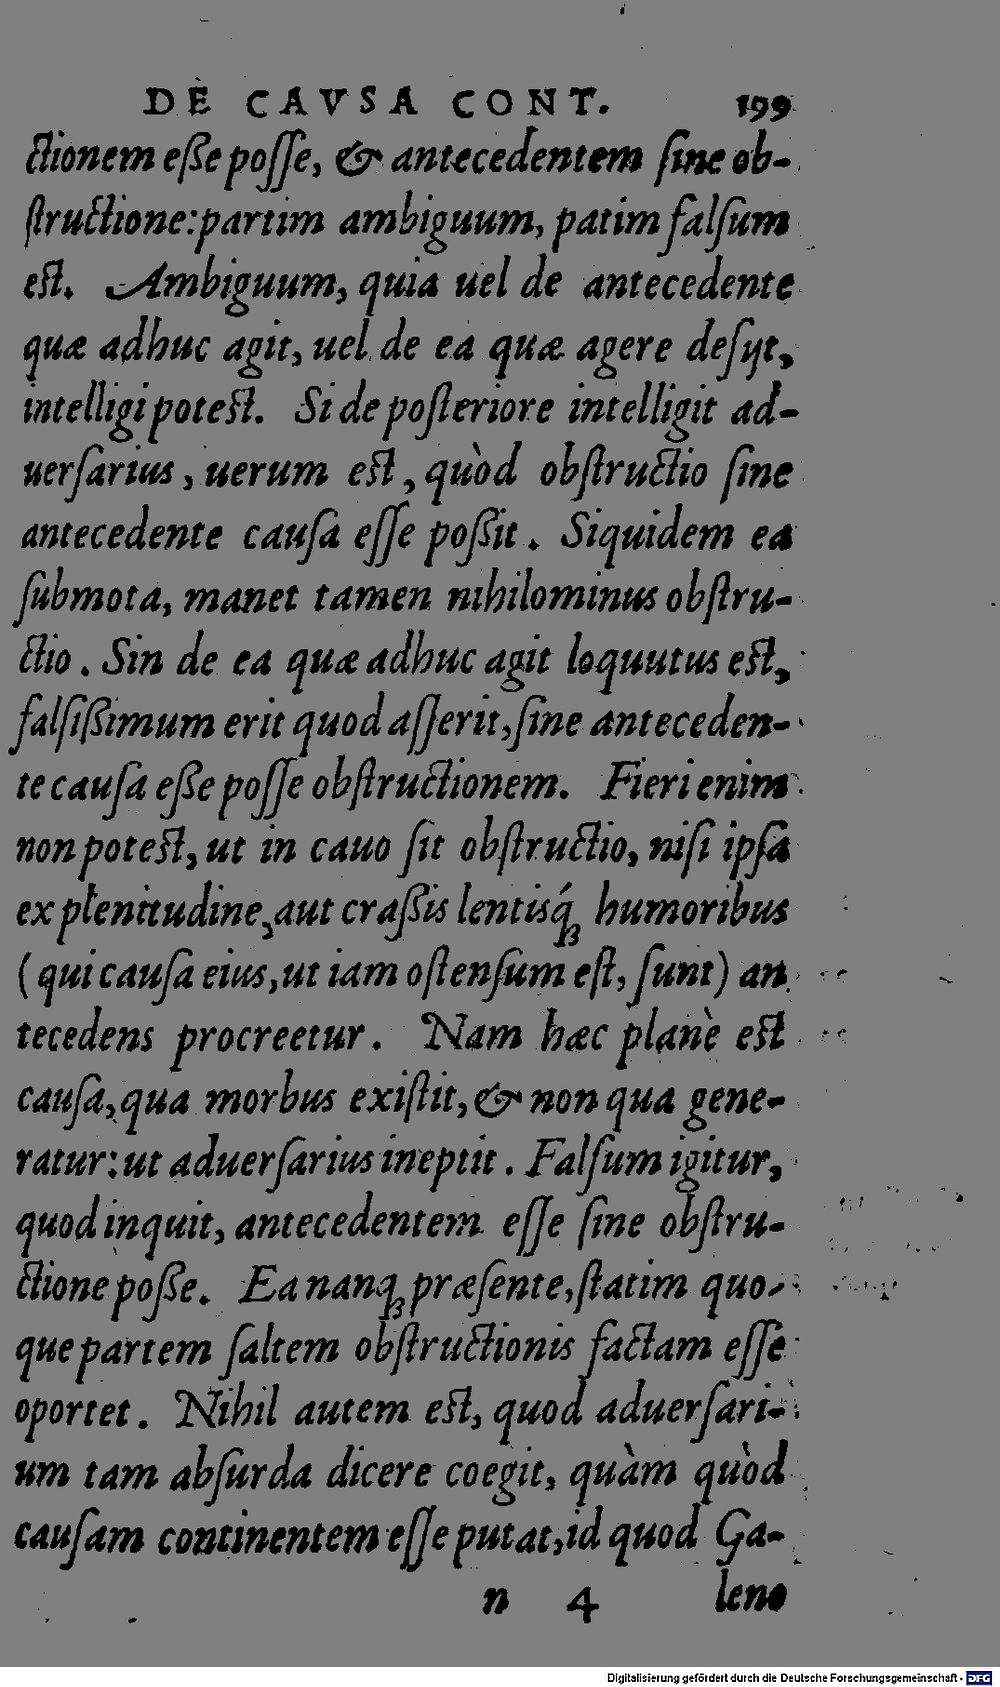 DE CAVSA CONT. 199
ctionem eße poſſe, & antecedentem ſine ob-
ſtructione: partim ambiguum, patim falſum
est. Ambiguum, quia uel de antecedente
quæ adhuc agit, uel de ea quæ agere deſijt,
intelligi potest. Si de poſteriore intelligit ad-
uerſarius, uerum est, quòd obſtructio ſine
antecedente cauſa eſſe poßit. Siquidem ea
ſubmota, manet tamen nihilominus obſtru-
ctio. Sin de ea quæ adhuc agit loquutus est,
falſißimum erit quod aſſerit, ſine anteceden-
te cauſa eße poſſe obſtructionem. Fieri enim
non potest, ut in cauo ſit obſtructio, niſi ipſa
ex plenitudine, aut craßis lentisq́ꝫ humoribus
(qui cauſa eius, ut iam oſtenſum eſt, ſunt) an
tecedens procreetur. Nam hæc planè est
cauſa, qua morbus exiſtit, & non qua gene-
ratur: ut aduerſarius ineptit. Falſum igitur,
quod inquit, antecedentem eſſe ſine obſtru-
ctione poße. Ea nanqꝫ præſente, ſtatim quo-
que partem ſaltem obſtructionis factam eſſe
oportet. Nihil autem est, quod aduerſari-
um tam abſurda dicere coegit, quàm quòd
cauſam continentem eſſe putat, id quod Ga-
n 4 leno
Digitalisierung gefördert durch die Deutsche Forschungsgemeinschaft - DFG